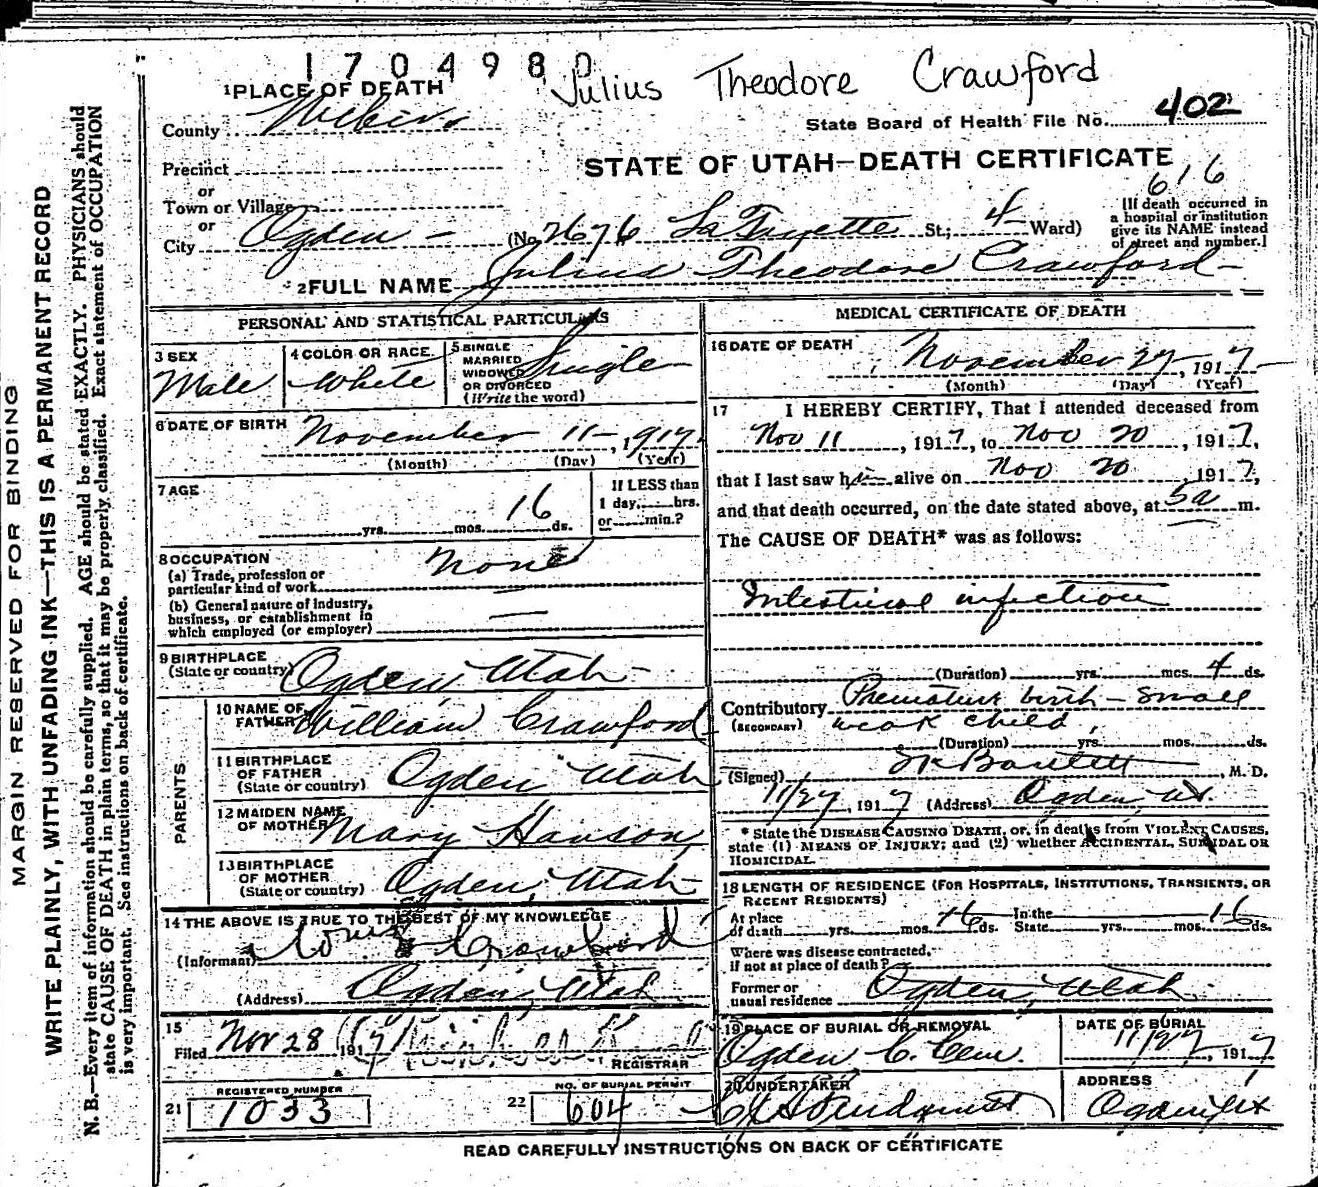 1704980
Julius Theodore Crawford
1 PLACE OF DEATH
County Weber
State Board of Health File No. 402
Precinct
STATE OF UTAH—DEATH CERTIFICATE
616
or
Town or Village
or
City Ogden (No. 2676 La Fayette St.; 4 Ward)
[If death occurred in
a hospital or institution
give its NAME instead
of street and number.]
2 FULL NAME Julius Theodore Crawford
PERSONAL AND STATISTICAL PARTICULARS
3 SEX
Male
4 COLOR OR RACE
White
5 SINGLE
MARRIED
WIDOWED
OR DIVORCED
(Write the word)
Single
6 DATE OF BIRTH
November 11, 1917
(Month) (Day) (Year)
7 AGE
yrs. mos. 16 ds.
If LESS than
1 day, hrs.
or min.?
8 OCCUPATION
(a) Trade, profession or
particular kind of work
None
(b) General nature of industry,
business, or establishment in
which employed (or employer)
9 BIRTHPLACE
(State or country) Ogden Utah
PARENTS
10 NAME OF
FATHER William Crawford
11 BIRTHPLACE
OF FATHER
(State or country) Ogden Utah
12 MAIDEN NAME
OF MOTHER Mary Hanson
13 BIRTHPLACE
OF MOTHER
(State or country) Ogden, Utah
14 THE ABOVE IS TRUE TO THE BEST OF MY KNOWLEDGE
(Informant) Crawford
(Address) Ogden, Utah
15
Filed Nov 28 1917
REGISTRAR
21 REGISTERED NUMBER
1033
22 NO. OF BURIAL PERMIT
604
MEDICAL CERTIFICATE OF DEATH
16 DATE OF DEATH
November 27, 1917
(Month) (Day) (Year)
17 I HEREBY CERTIFY, That I attended deceased from
Nov 11, 1917, to Nov 20, 1917,
that I last saw h alive on Nov 20 1917,
and that death occurred, on the date stated above, at 5a m.
The CAUSE OF DEATH* was as follows:
Intestinal infection
(Duration) yrs. mos. 4 ds.
Contributory Premature birth - small
(SECONDARY) weak child
(Duration) yrs. mos. ds.
(Signed) Bartlett, M. D.
11/27, 1917 (Address) Ogden, Ut.
* State the DISEASE CAUSING DEATH, or, in deaths from VIOLENT CAUSES,
state (1) MEANS OF INJURY; and (2) whether ACCIDENTAL, SUICIDAL OR
HOMICIDAL.
18 LENGTH OF RESIDENCE (FOR HOSPITALS, INSTITUTIONS, TRANSIENTS, OR
RECENT RESIDENTS)
At place
of death yrs. mos. 16 ds. In the
State yrs. mos. 16 ds.
Where was disease contracted,
if not at place of death?
Former or
usual residence Ogden, Utah
19 PLACE OF BURIAL OR REMOVAL
Ogden C. Cem.
DATE OF BURIAL
11/27, 1917
20 UNDERTAKER
ADDRESS
Ogden, Ut
READ CAREFULLY INSTRUCTIONS ON BACK OF CERTIFICATE
MARGIN RESERVED FOR BINDING
WRITE PLAINLY, WITH UNFADING INK—THIS IS A PERMANENT RECORD
N. B.—Every item of information should be carefully supplied. AGE should be stated EXACTLY. PHYSICIANS should
state CAUSE OF DEATH in plain terms, so that it may be properly classified. Exact statement of OCCUPATION
is very important. See instructions on back of certificate.